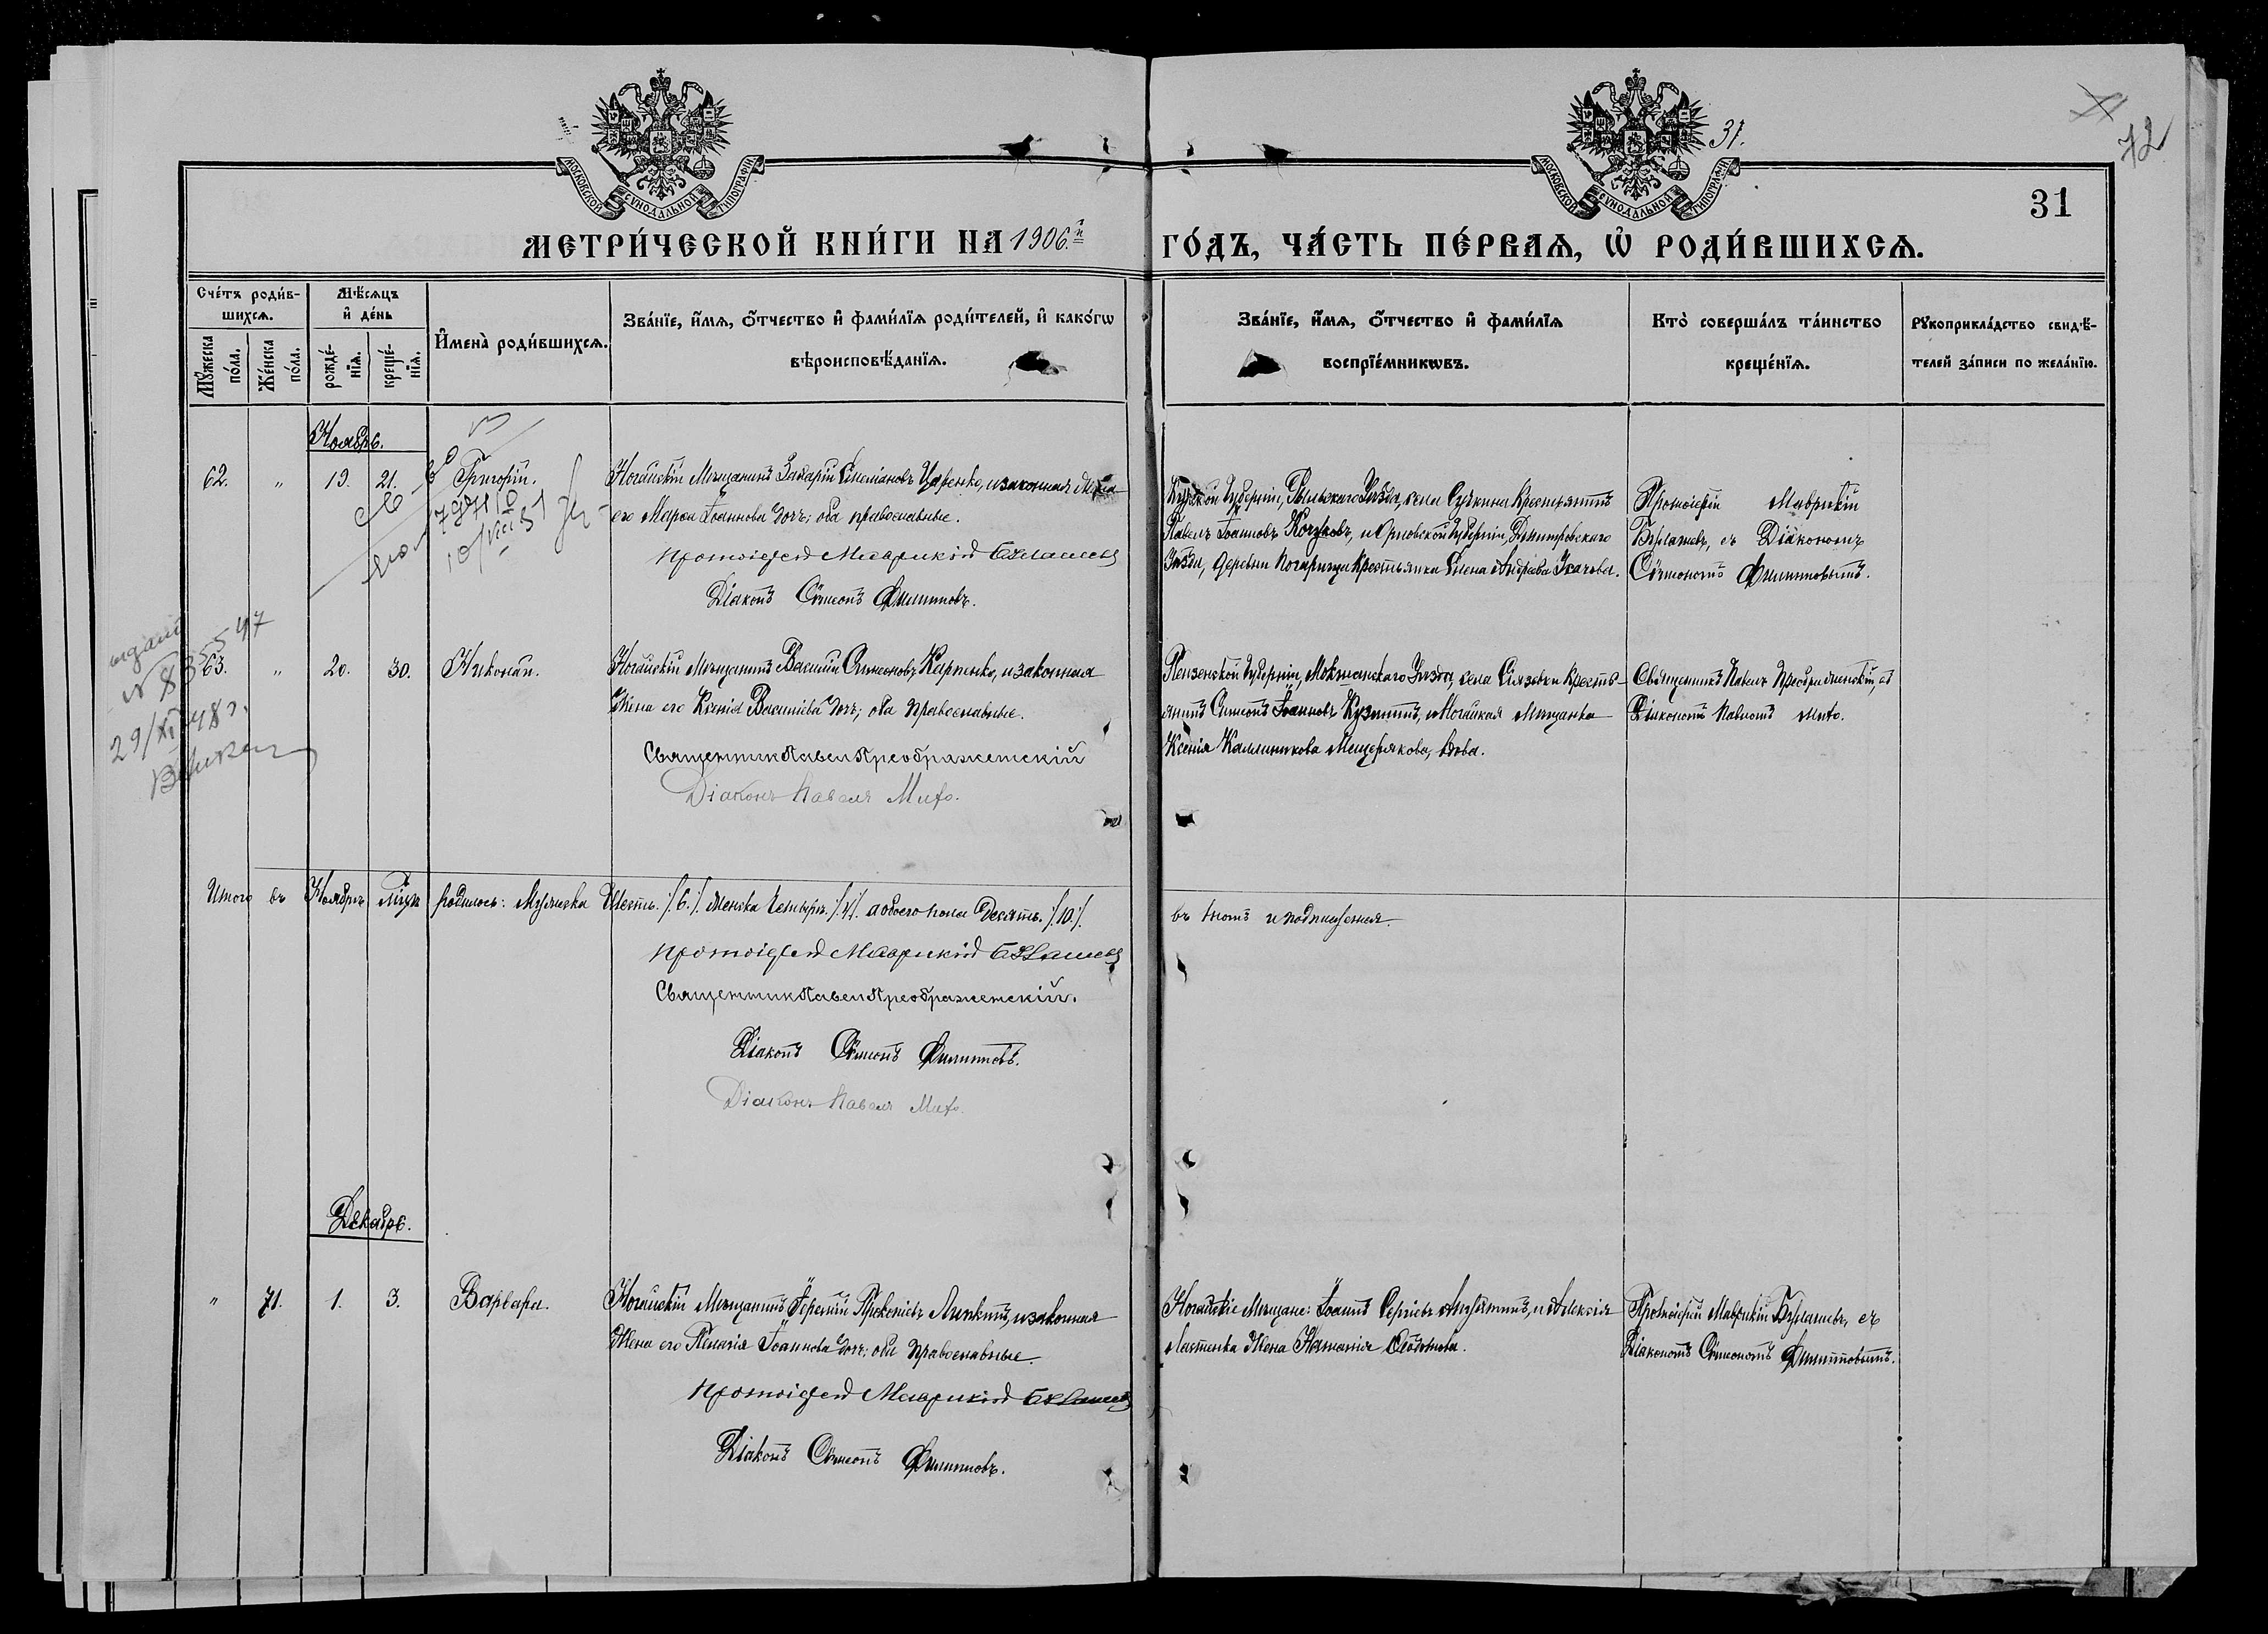 МОСКОВСКОЙ СѴНОДАЛЬНОЙ ТИПОГРАФІИ
МОСКОВСКОЙ СѴНОДАЛЬНОЙ ТИПОГРАФІИ
31.
72
31
МЕТРИ́ЧЕСКОЙ КНИ́ГИ НА 1906.й
ГО́ДЪ, ЧА́СТЬ ПЕ́РВАѦ, Ѡ РОДИ́ВШИХСѦ.
Сче́тъ роди́в-
шихсѧ.
Мꙋ́жеска по́ла.
Же́нска по́ла.
Мѣ́сѧцъ
и҆ де́нь
рожде́-
нїѧ.
креще́-
нїѧ.
И҆мена̀ роди́вшихсѧ.
Зва́нїе, и҆́мѧ, ѻ҆́тчество и҆ фами́лїѧ роди́телей, и҆ како́гѡ
вѣроисповѣ́данїѧ.
Зва́нїе, и҆́мѧ, ѻ҆́тчество и҆ фами́лїѧ
воспрїе́мникѡвъ.
Кто̀ соверша́лъ та́инство
креще́нїѧ.
Рꙋкоприкла́дство свидѣ́-
телей за́писи по жела́нїю.
Ноябрь.
62. " 19. 21. Григорій.
Ногайскій Мѣщанинъ Захарій Симеоновъ Царенко, и законная Жена
его Марѳа Іоаннова дочь; оба православные.
Протоіерей Маврикій Бурлашевъ
Діаконъ Сѵмеонъ Филипповъ.
Курской Губерніи, Рыльскаго Уѣзда, села Сучкина Крестьянинъ
Павелъ Іоанновъ Кочуковъ, и Орловской Губерніи, Дмитровскаго
Уѣзда, деревни Погарищи Крестьянка Елена Андреева Укачова.
Протоіерей Маврикій
Бурлашевъ, съ Діакономъ
Сѵмеономъ Филипповымъ.
10/VIII 51
63. " 20. 30. Николай.
29/XI 48 г.
Ногайскій Мѣщанинъ Василій Симеоновъ Карпенко, и законная
Жена его Ксенія Васильева дочь; оба православные.
Священник Павел Преображенскій
Діаконъ Павелъ Мито.
Пензенской Губерніи, Мокшанскаго Уѣзда, села Симоновки Кресть-
янинъ Симеонъ Іоанновъ Кузминъ, и Ногайская Мѣщанка
Ксенія Каллиникова Мещерякова, вдова.
Священникъ Павелъ Преображенскій, съ
Діакономъ Павломъ Мито.
Итого въ Ноябрѣ мѣсяцѣ родилось: Мужеска Шесть. /.6./. Женска Четыре. /.4./. а обоего пола Десять. /.10./.
въ томъ и подписуемся.
Протоіерей Маврикій Бурлашевъ
Священник Павел Преображенскій.
Діаконъ Сѵмеонъ Филипповъ.
Діаконъ Павелъ Мито.
Декабрь.
" 71. 1. 3. Варвара.
Ногайскій Мѣщанинъ Іеремій Прокопіевъ Липкинъ, и законная
Жена его Пелагія Іоаннова дочь; оба православные.
Протоіерей Маврикій Бурлашевъ
Діаконъ Сѵмеонъ Филипповъ.
Ногайскіе Мѣщане: Іоаннъ Сергіевъ
Жена Наталія
Протоіерей Маврикій Бурлашевъ, съ
Діакономъ Сѵмеономъ Филипповымъ.